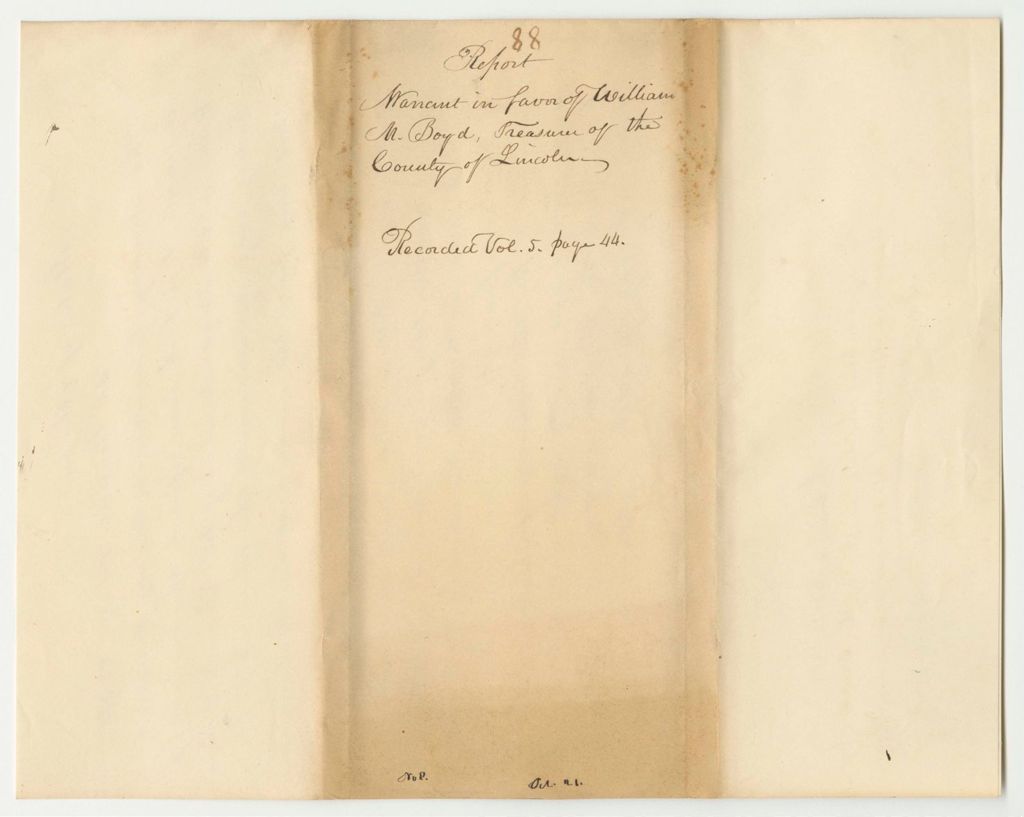 88
Report
Warrant in favor of William
M. Boyd, Treasurer of the
County of Lincoln
Recorded Vol. 5. page 44.
No 8.
Oct. 21.